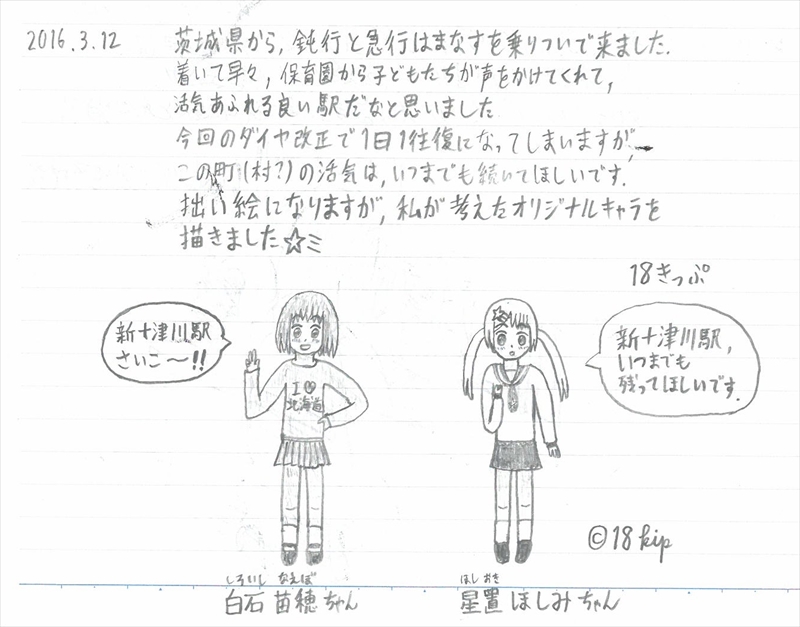 2016.3.12
茨城県から,鈍行と急行はまなすを乗りついで来ました.
着いて早々,保育園から子どもたちが声をかけてくれて,
活気あふれる良い駅だなと思いました
今回のダイヤ改正で1日1往復になってしまいますが,
この町(村?)の活気は,いつまでも続いてほしいです.
拙い絵になりますが,私が考えたオリジナルキャラを
描きました☆ミ
18きっぷ
新十津川駅
さいこ〜!!
新十津川駅,
いつまでも
残ってほしいです.
I ♡
北海道
©18kip
しろいし なえぼ
白石 苗穂 ちゃん
ほし おき
星置 ほしみ ちゃん